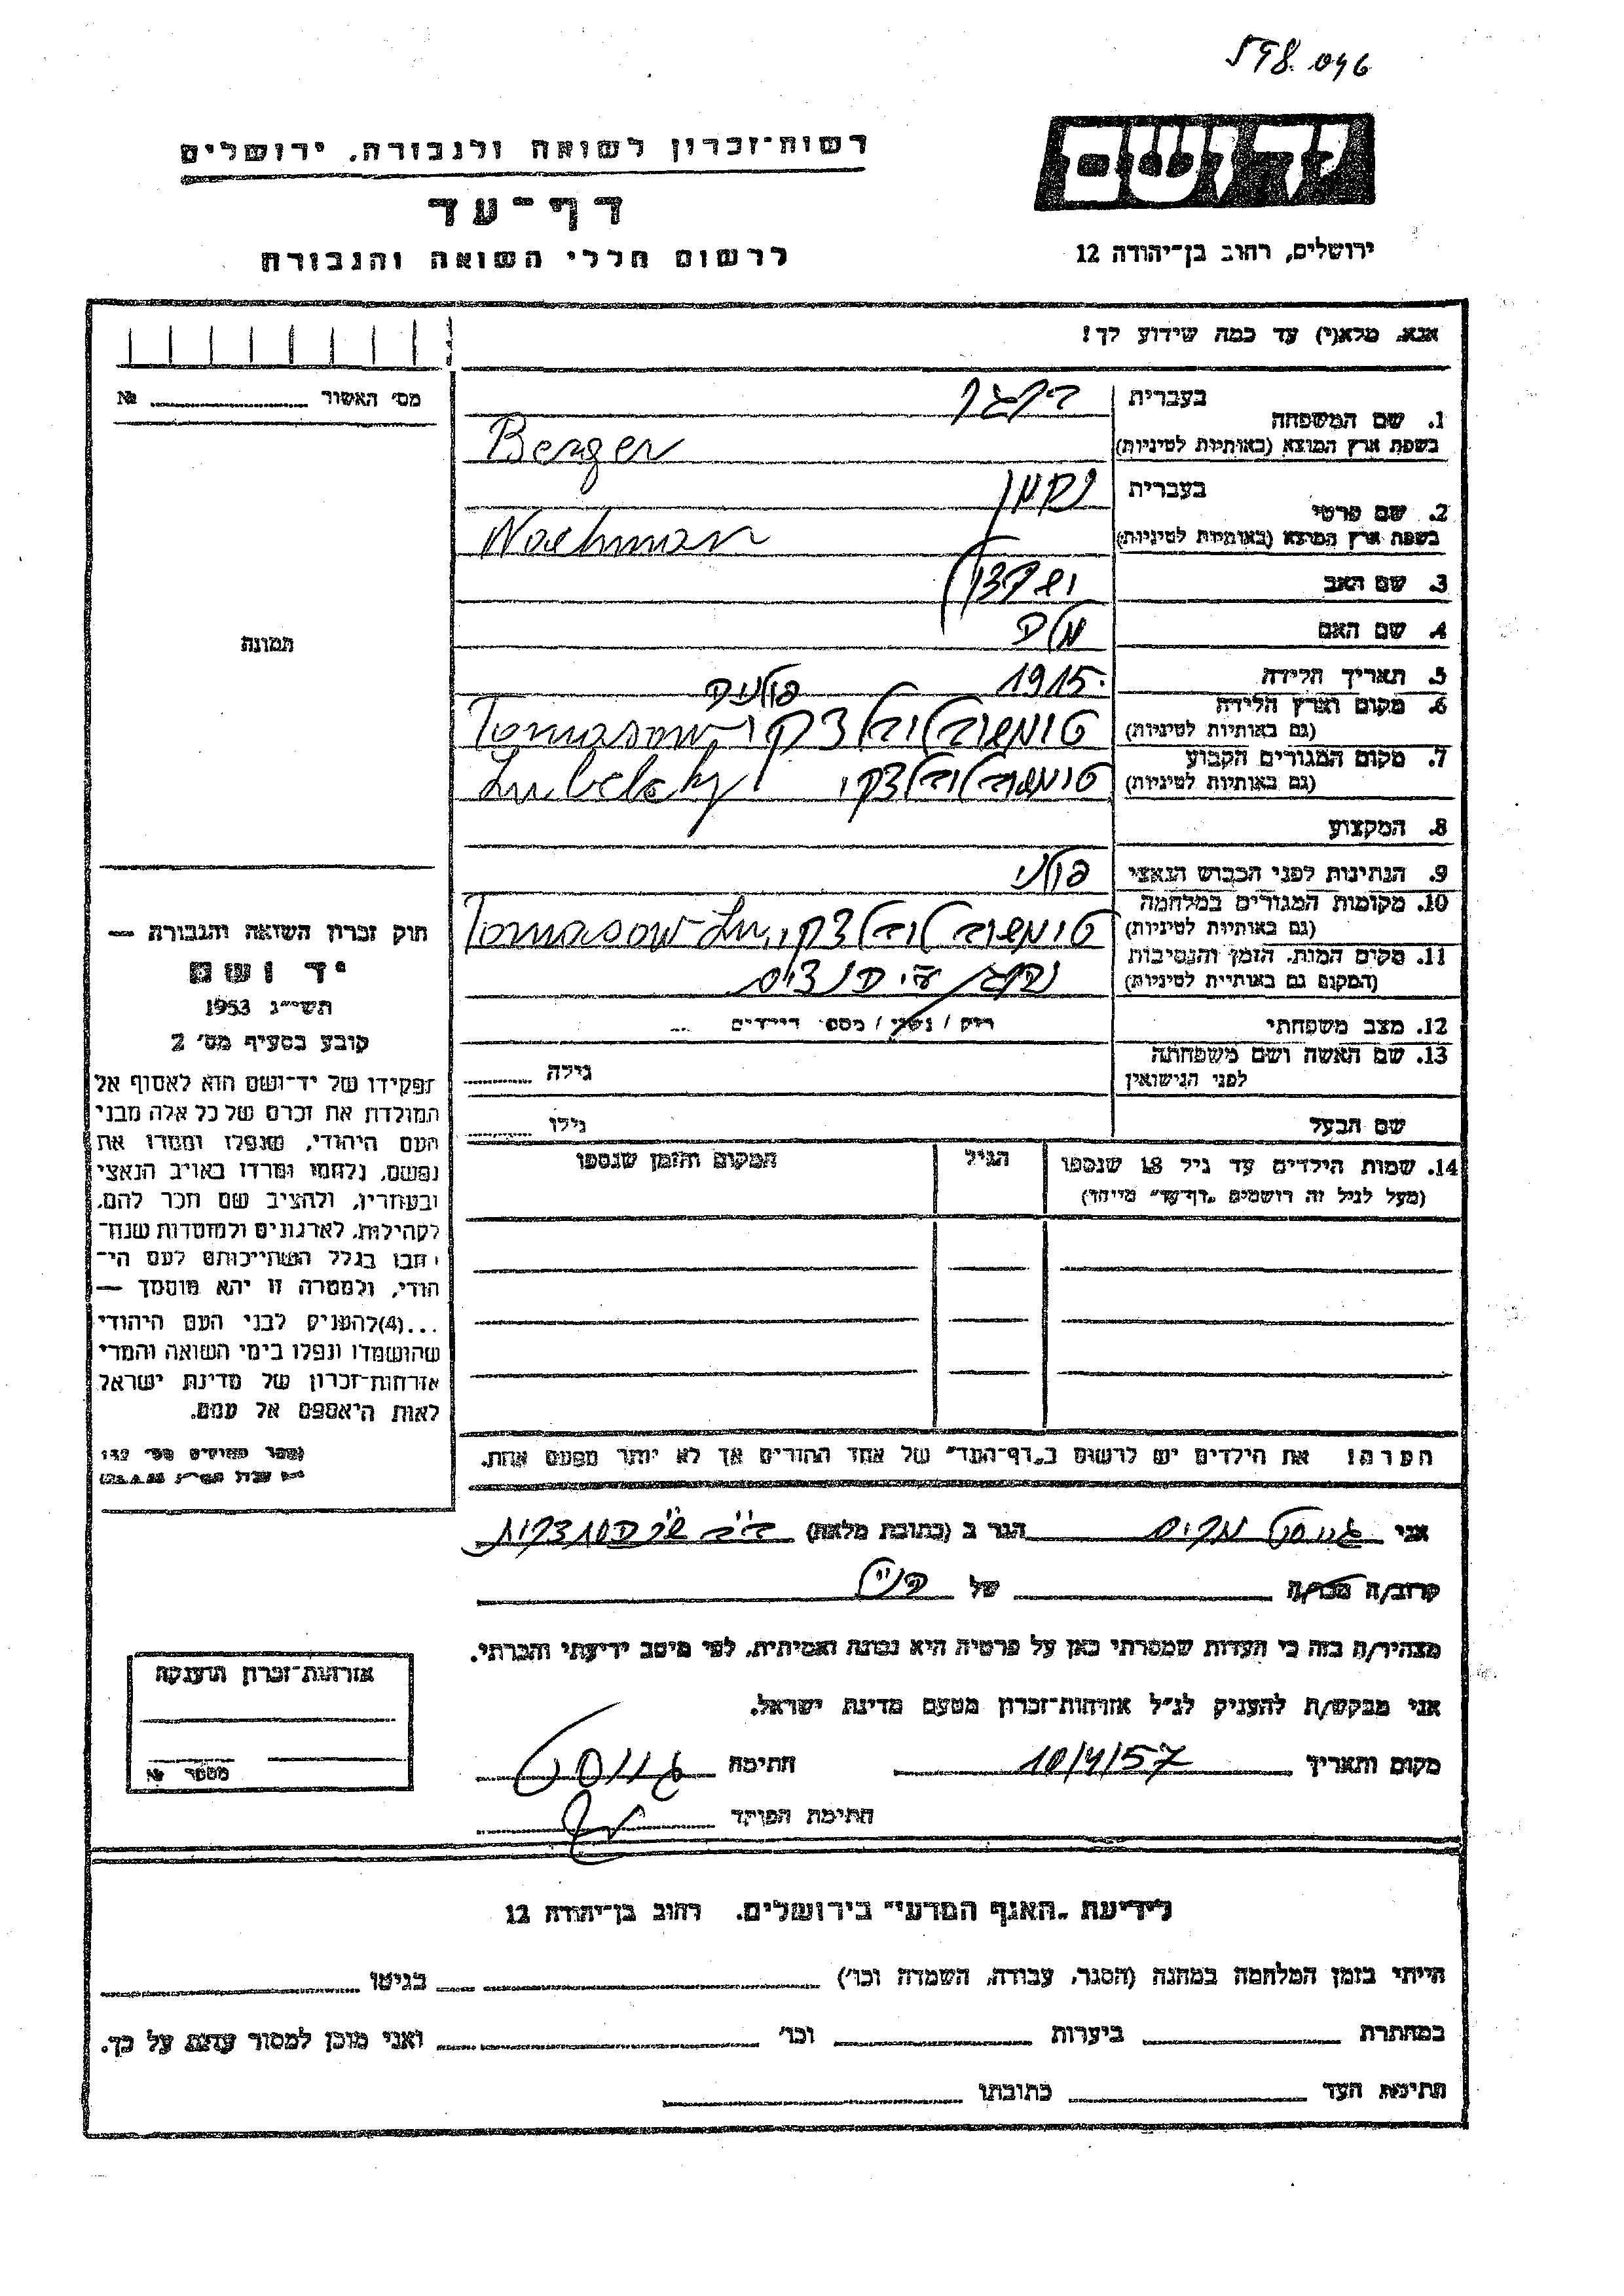 598.046
יד ושם
רשות־זכרון לשואה ולגבורה, ירושלים
דף־עד
לרשום חללי השואה והגבורה
ירושלים, רחוב בן־יהודה 12
אנא, מלא(י) עד כמה שידוע לך!
מס׳ האשור № 
1. שם המשפחה
בעברית ברגר
בשפת ארץ המוצא (באותיות לטיניות) Berger
2. שם פרטי
בעברית נחמן
בשפת ארץ המוצא (באותיות לטיניות) Nachman
3. שם האב
4. שם האם
5. תאריך הלידה 1915
6. מקום וארץ הלידה
(גם באותיות לטיניות) Tomasow פולניה
7. מקום המגורים הקבוע
(גם באותיות לטיניות) Lubelsky
8. המקצוע
9. הנתינות לפני הכבוש הנאצי פולני
10. מקומות המגורים במלחמה
(גם באותיות לטיניות) Tomasow Lu.
11. מקום המות, הזמן והנסיבות
(המקום גם באותיות לטיניות) נהרג ע״י הנצים
12. מצב משפחתי רוק / נשוי / מספר הילדים
13. שם האשה ושם משפחתה
לפני הנישואין גילה
שם הבעל גילו
14. שמות הילדים עד גיל 18 שנספו הגיל המקום והזמן שנספו
(מעל לגיל זה רושמים „דף־עד״ מיוחד)
הערה! את הילדים יש לרשום ב„דף־העד״ של אחד ההורים אך לא יותר מפעם אחת.
תמונה
חוק זכרון השואה והגבורה —
יד ושם
תשי״ג 1953
קובע בסעיף מס׳ 2
תפקידו של יד־ושם הוא לאסוף אל
המולדת את זכרם של כל אלה מבני
העם היהודי, שנפלו ומסרו את
נפשם, נלחמו ומרדו באויב הנאצי
ובעוזריו, ולהציב שם וזכר להם,
לקהילות, לארגונים ולמוסדות שנח־
רבו בגלל השתייכותם לעם הי־
הודי, ולמטרה זו יהא מוסמך —
...(4)להעניק לבני העם היהודי
שהושמדו ונפלו בימי השואה והמרי
אזרחות־זכרון של מדינת ישראל
לאות היאספם אל עמם.
אני הגר ב (כתובת מלאה)
קרוב/ה מכר/ה של
מצהיר/ה בזה כי העדות שמסרתי כאן על פרטיה היא נכונה ואמיתית, לפי מיטב ידיעתי והכרתי.
אני מבקש/ת להעניק לנ״ל אזרחות־זכרון מטעם מדינת ישראל.
מקום ותאריך 10/4/57 חתימה
חתימת הפוקד
אזרחות־זכרון הוענקה
מספר №
לידיעת „האגף המדעי״ בירושלים. רחוב בן־יהודה 12
הייתי בזמן המלחמה במחנה (הסגר, עבודה, השמדה וכו׳) בגיטו
במחתרת ביערות וכו׳ ואני מוכן למסור עדות על כך.
חתימת העד כתובתו